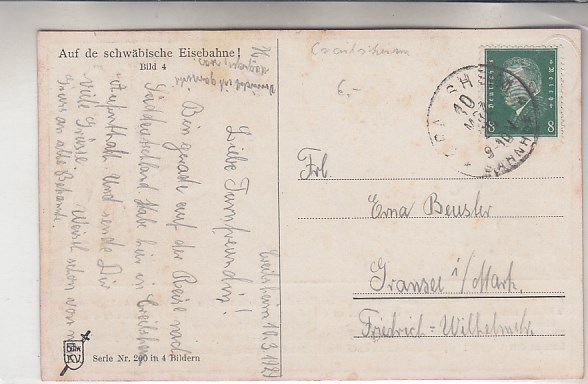 Auf de schwäbische Eisebahne!
Bild 4
Crailsheim 10.3.1929
Liebe Turnfreundin!
Bin gerade auf der Reise nach
Süddeutschland, habe hier in Creilsheim
Aufenthalt und sende Dir
viele Grüsse.
Gruss an alle Bekannte.
Serie Nr. 200 in 4 Bildern
Crailsheim
6,-
Deutsches Reich
8
8
10
9-10
BAHNH
Frl.
Erna Beuster
Gransee i/Mark.
Friedrich-Wilhelmstr.